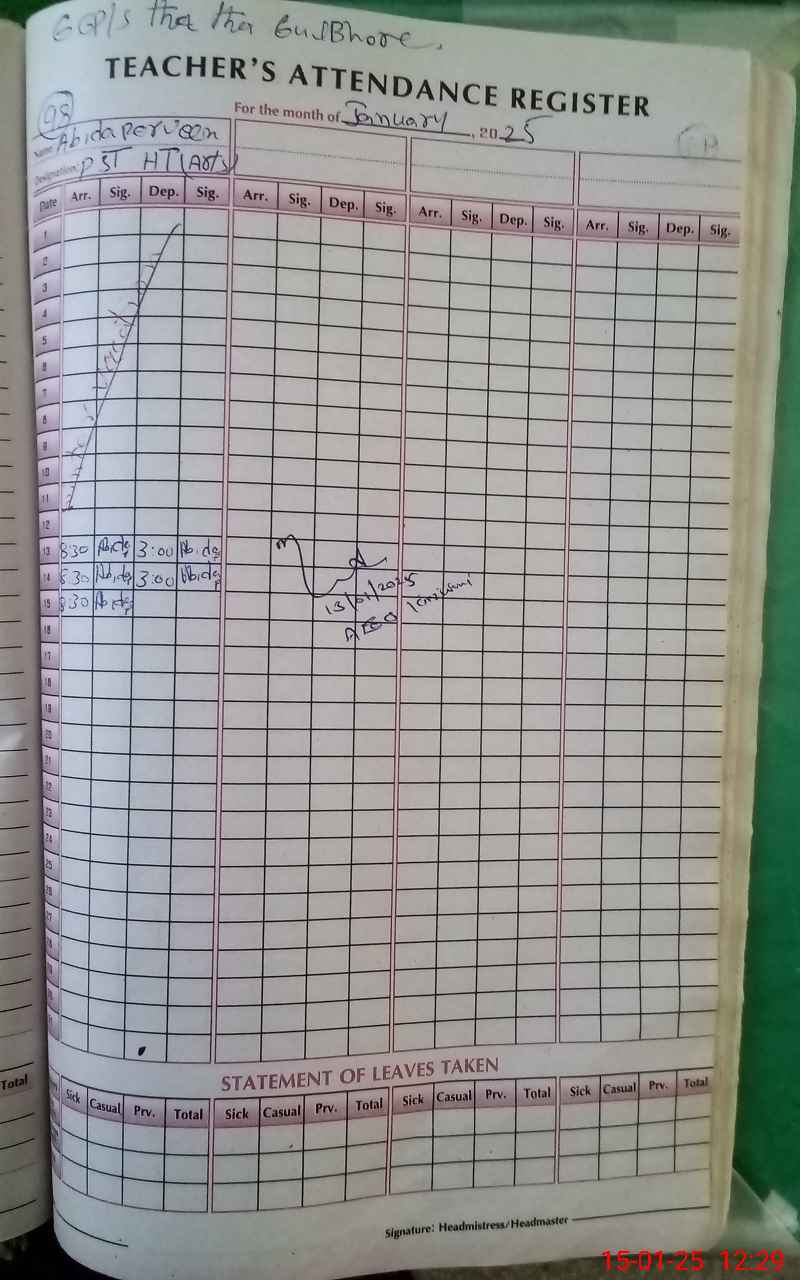 GGP/S tha tha GulBhore.
TEACHER'S ATTENDANCE REGISTER
For the month of January, 2025
98
Name: Abida perveen
Designation: PST HT (Arts)
Date Arr. Sig. Dep. Sig. Arr. Sig. Dep. Sig. Arr. Sig. Dep. Sig. Arr. Sig. Dep. Sig.
1
2
3
4
5
6
7
8
9
10
11
12
13 8:30 Abida 3:00 Abida
14 8:30 Abida 3:00 Abida
15 8:30 Abida
13/01/2025
AEO
16
17
18
19
20
21
22
23
24
25
26
27
STATEMENT OF LEAVES TAKEN
Total
Sick Casual Prv. Total Sick Casual Prv. Total Sick Casual Prv. Total Sick Casual Prv. Total
Signature: Headmistress/Headmaster
15-01-25 12:29